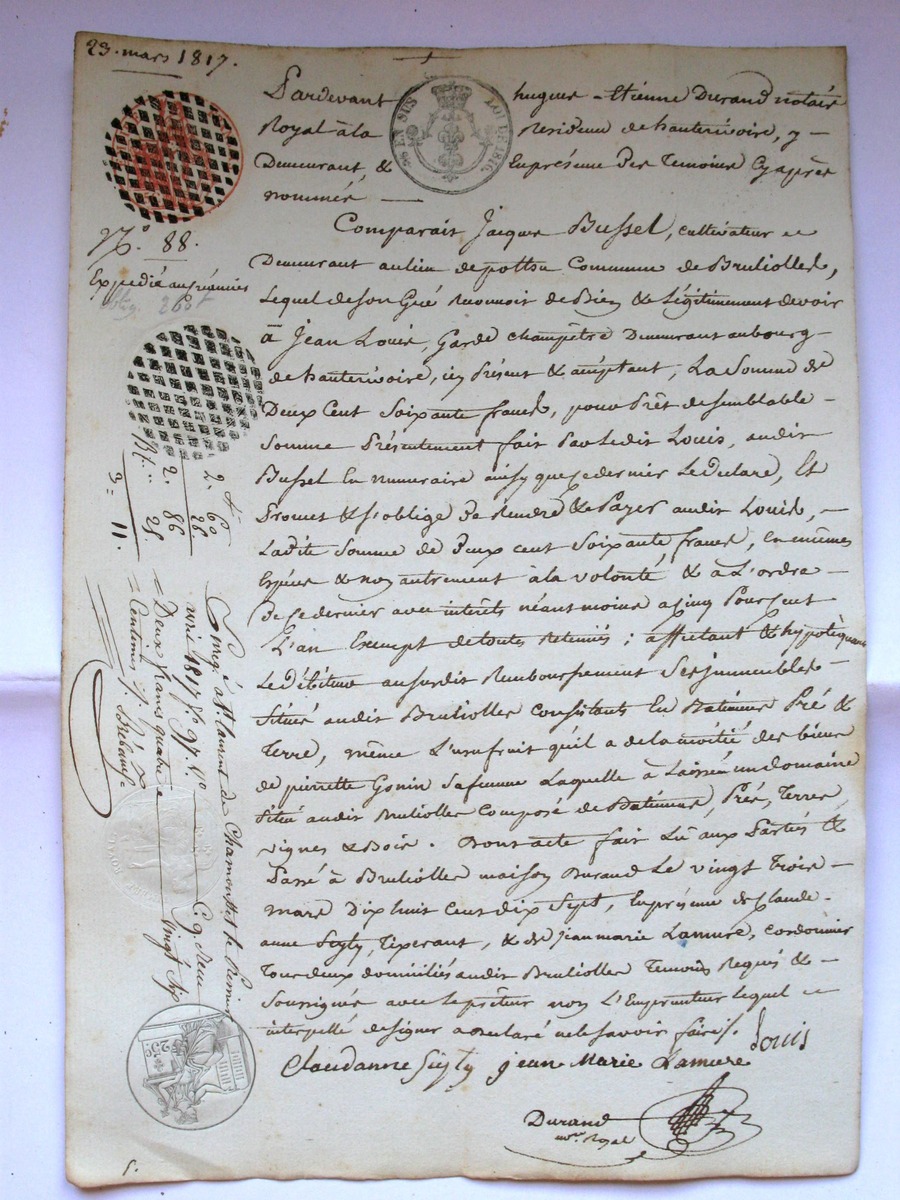 23. mars 1817.
Pardevant hugues - Etienne Durand notaire
Royal à la Residence de hauterivoire, y -
Demeurant, & En présence Des Temoins Cyaprès
nommés -
Comparait Jacques Bussel, cultivateur
Demeurant au lieu de Commune de Bruliolles,
Lequel de Son Gré Reconnoit de Bien & Légitimement devoir
à Jean Louis, Garde champêtre Demeurant au bourg -
de hauterivoire, icy Présent & acceptant; La Somme de
Deux Cent Soixante francs, pour Prêt de Semblable -
Somme Présentement fait Par Ledit Louis, audit
Bussel En numeraire ainsy que ce dernier Le Declare, Et
Promet & s'oblige De Rendre & Payer audit Louis, -
Ladite Somme de Deux cent Soixante francs, En mêmes
Espèces & non autrement à la volonté & à L'ordre -
De ce dernier avec intérêts néantmoins a Cinq Pour Cent
L'an Exempt de toutes Retenues; affectant & hypotéquant
Le Débiteur au Susdit Remboursement Ses immeubles -
Situés audit Bruliolles Consistants En Batiments Pré &
Terre, même L'usufruit qu'il a de la moitié des biens
de pierrette Gonin Sa femme Laquelle à Laissé un domaine
Situé audit Bruliolles Composé de Batiments, Prés, Terres,
vignes & Bois. Dont acte fait Lu aux Parties &
Passé à Bruliolles maison Durand Le vingt Trois -
mars Dix huit Cent dix Sept, En présence de Claude-
anne Sigly, Tixerant, & de jean marie Lamure, Cordonnier
Tous deux domiciliés audit Bruliolles Temoins Requis & -
Soussignés avec Le prêteur non L'Emprunteur Lequel
interpellé de signer a Declaré ne le Savoir faire /.
Louis
Claudanne Sigly jean Marie Lamure
Durand
not. Royal
EN SUS
LOI DE 1816
No. 88.
Expedié au créancier
260
2. 60
26
2. 86
25
3 = 11.
Enreg. à St Laurent de Chamousset le Premier
avril 1817 fo 97. Vo C. 9. Reçu
Deux francs quatre vingt Six
Centimes
25c